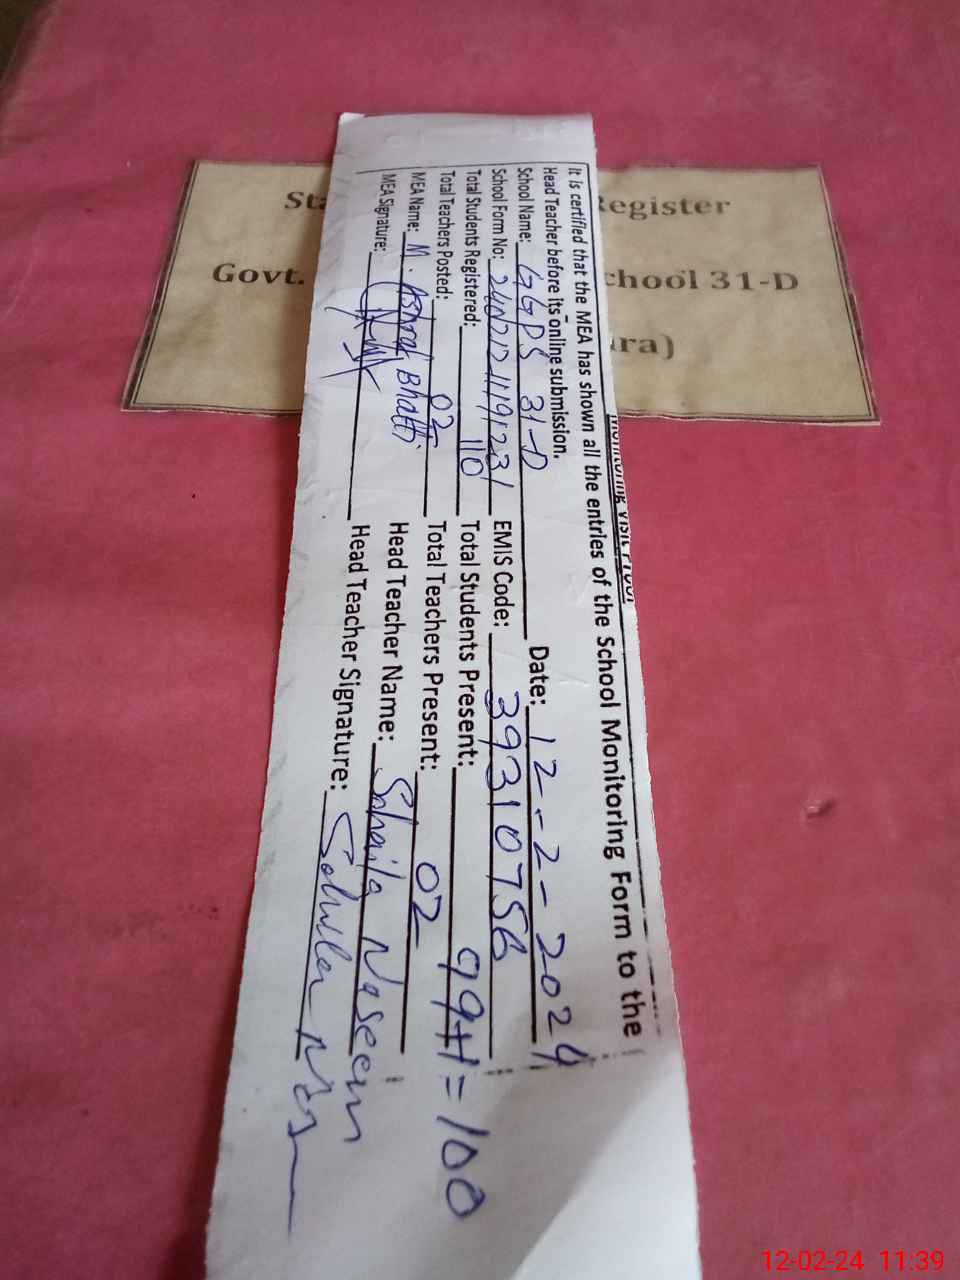 Monitoring Visit Proof
It is certified that the MEA has shown all the entries of the School Monitoring Form to the
Head Teacher before its online submission.
School Name: GGPS 31-D Date: 12-2-2024
School Form No: EMIS Code: 39310756
Total Students Registered: 110 Total Students Present: 99+1=100
Total Teachers Posted: 02 Total Teachers Present: 02
MEA Name: M. Ashraf Bhatti Head Teacher Name: Sohaila Naseem
MEA Signature: Head Teacher Signature:
Register
Govt. chool 31-D
ra)
12-02-24 11:39